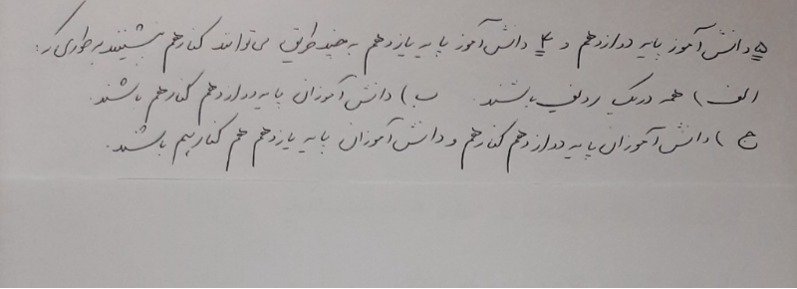 ۵ دانش آموز پایه دوازدهم و ۴ دانش آموز پایه یازدهم به چند طریق می توانند کنار هم بنشینند به طوری که:
الف) همه در یک ردیف باشند. ب) دانش آموزان پایه دوازدهم کنار هم باشند.
ج) دانش آموزان پایه دوازدهم کنار هم و دانش آموزان پایه یازدهم هم کنار هم باشند.